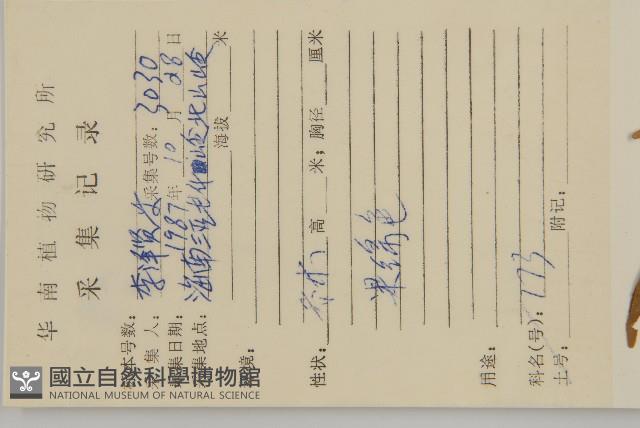 华南植物研究所
采集记录
标本号数:
采集人: 李泽贤 采集号数: 3030
采集日期: 1987年10月28日
采集地点: 海南三亚
海拔 米
环境:
性状: 乔木 高 米; 胸径 厘米
果绿色
用途:
科名(号): 173
土号: 附记:
國立自然科學博物館
NATIONAL MUSEUM OF NATURAL SCIENCE